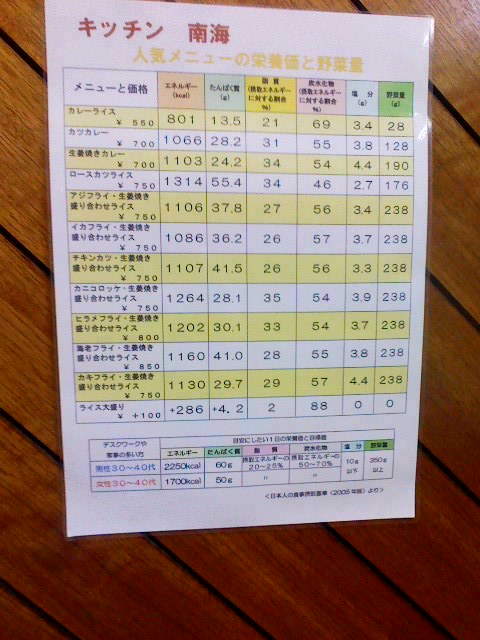 キッチン 南海
人気メニューの栄養価と野菜量
メニューと価格 エネルギー(kcal) たんぱく質(g) 脂質(摂取エネルギーに対する割合%) 炭水化物(摂取エネルギーに対する割合%) 塩分(g) 野菜量(g)
カレーライス ¥550 801 13.5 21 69 3.4 28
カツカレー ¥700 1066 28.2 31 55 3.8 128
生姜焼きカレー ¥700 1103 24.2 34 54 4.4 190
ロースカツライス ¥750 1314 55.4 34 46 2.7 176
アジフライ・生姜焼き
盛り合わせライス ¥750 1106 37.8 27 56 3.4 238
イカフライ・生姜焼き
盛り合わせライス ¥750 1086 36.2 26 57 3.7 238
チキンカツ・生姜焼き
盛り合わせライス ¥750 1107 41.5 26 56 3.3 238
カニコロッケ・生姜焼き
盛り合わせライス ¥750 1264 28.1 35 54 3.9 238
ヒラメフライ・生姜焼き
盛り合わせライス ¥800 1202 30.1 33 54 3.7 238
海老フライ・生姜焼き
盛り合わせライス ¥850 1160 41.0 28 55 3.8 238
カキフライ・生姜焼き
盛り合わせライス ¥750 1130 29.7 29 57 4.4 238
ライス大盛り ¥+100 +286 +4.2 2 88 0 0
デスクワークや家事の多い方 目安にしたい1日の栄養価と目標量
エネルギー たんぱく質 脂質 炭水化物 塩分 野菜量
男性30~40代 2250kcal 60g 摂取エネルギーの20~25% 摂取エネルギーの50~70% 10g以下 350g以上
女性30~40代 1700kcal 50g 〃 〃
<日本人の食事摂取基準(2005年版)より>